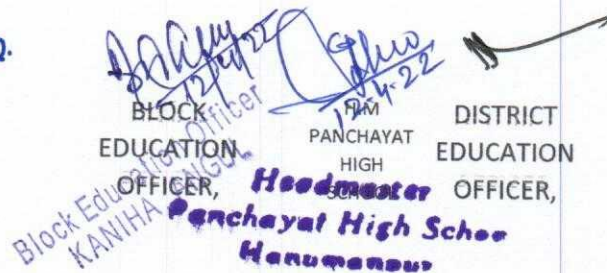 2.
12/4/22
12-4-22
BLOCK
EDUCATION
OFFICER,
H/M
PANCHAYAT
HIGH
SCHOOL
DISTRICT
EDUCATION
OFFICER,
Block Education Officer
KANIHA ANGUL
Headmaster
Panchayat High Schoo
Hanumanpur